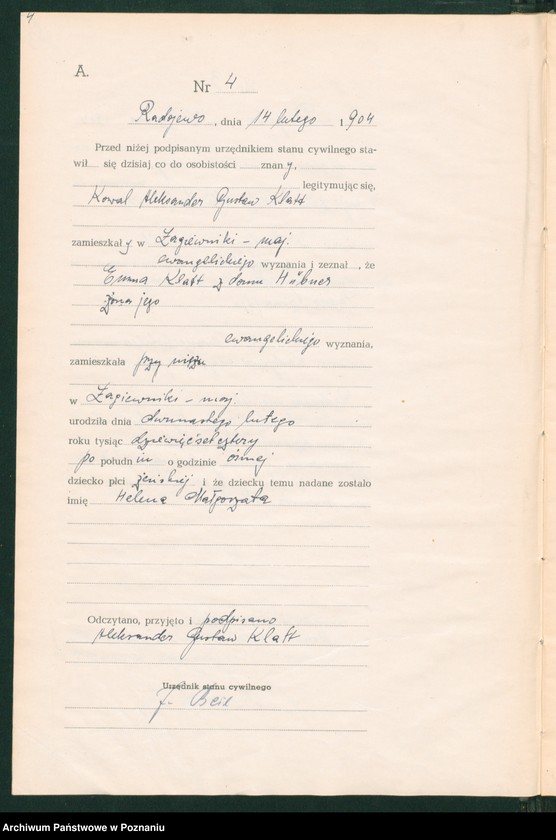 4
A.
Nr 4
Radojewo, dnia 14 lutego 1904
Przed niżej podpisanym urzędnikiem stanu cywilnego sta-
wił się dzisiaj co do osobistości znany,
legitymując się,
Kowal Aleksander Gustaw Klatt
zamieszkały w Łagiewniki – maj.
ewangelickiego wyznania i zeznał, że
Emma Klatt z domu Hübner
żona jego
ewangelickiego wyznania,
zamieszkała przy mężu
w Łagiewniki – maj.
urodziła dnia dwunastego lutego
roku tysiąc dziewięćset cztery
po południu o godzinie ósmej
dziecko płci żeńskiej i że dziecku temu nadane zostało
imię Helena Małgorzata
Odczytano, przyjęto i podpisano
Aleksander Gustaw Klatt
Urzędnik stanu cywilnego
Archiwum Państwowe w Poznaniu